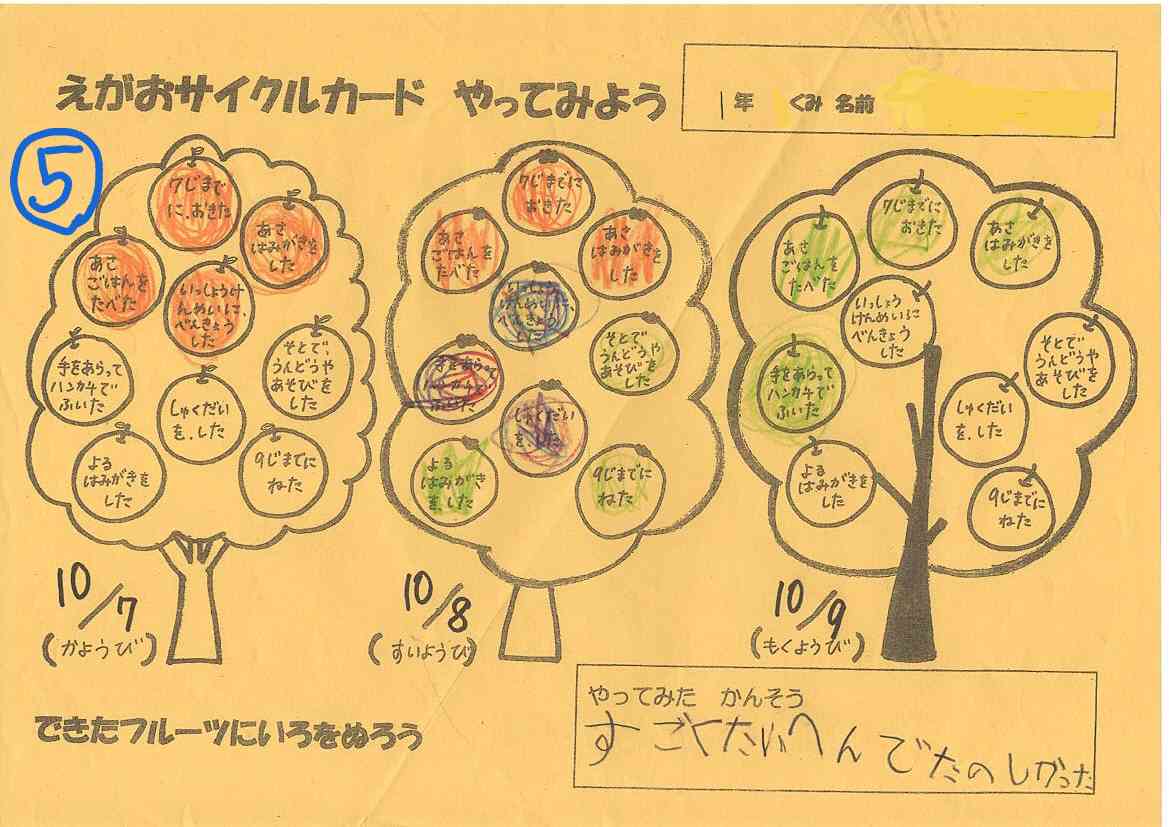 えがおサイクルカード やってみよう
1年 くみ 名前
5
7じまで
に、おきた
あさ
はみがきを
した
あさ
ごはんを
たべた
いっしょうけ
んめいに、
べんきょう
した
手をあらって
ハンカチで
ふいた
そとで、
うんどうや
あそびを
した
しゅくだい
を、した
よる
はみがきを
した
9じまでに
ねた
10/7
(かようび)
7じまでに
おきた
あさ
ごはんを
たべた
あさ
はみがきを
した
いっしょう
けんめいに
べんきょう
した
そとで
うんどうや
あそびを
した
手をあらって
ハンカチで
ふいた
しゅくだい
を、した
よる
はみがき
を、した
9じまでに
ねた
10/8
(すいようび)
7じまでに
おきた
あさ
ごはんを
たべた
あさ
はみがきを
した
いっしょう
けんめいに
べんきょう
した
そとで
うんどうや
あそびを
した
手をあらって
ハンカチで
ふいた
しゅくだい
を、した
よる
はみがきを
した
9じまでに
ねた
10/9
(もくようび)
できたフルーツにいろをぬろう
やってみた かんそう
すごくたいへんでたのしかった